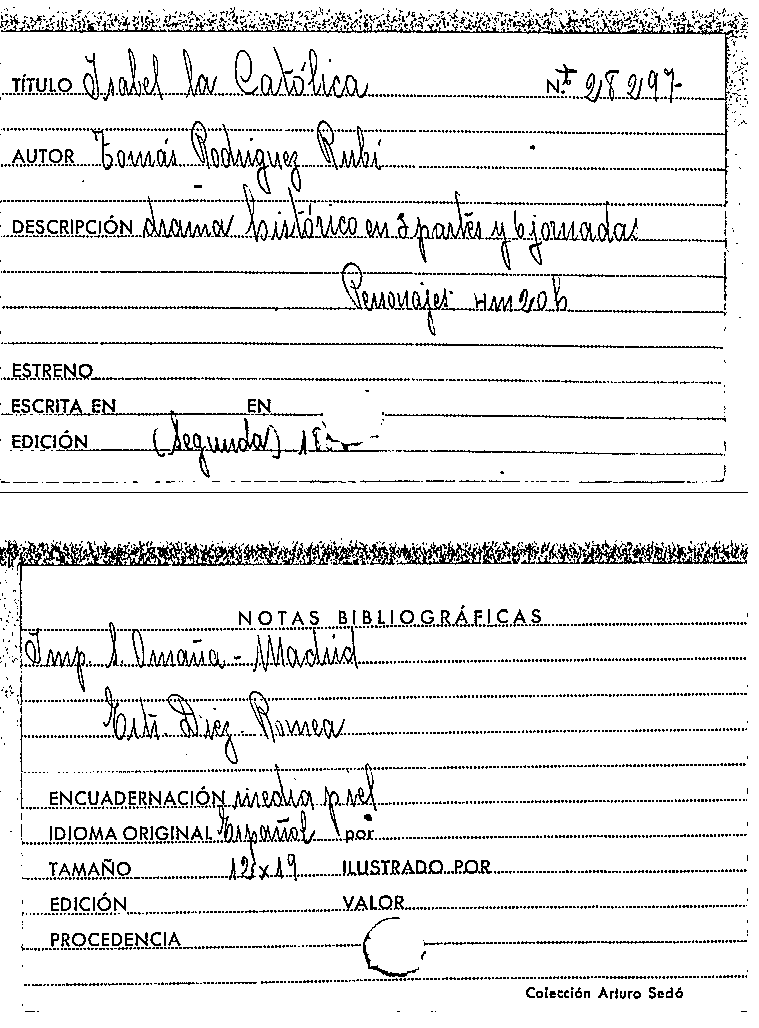 TÍTULO Isabel la Católica Nº 28297
AUTOR Tomás Rodriguez Rubí
DESCRIPCIÓN drama histórico en 3 partes y 6 jornadas
Personajes 4m 20h
ESTRENO
ESCRITA EN EN
EDICIÓN (Segunda)
NOTAS BIBLIOGRÁFICAS
Imp. S. Omaña - Madrid
Diez Romea
ENCUADERNACIÓN media piel
IDIOMA ORIGINAL Español por
TAMAÑO 12x19 ILUSTRADO POR
EDICIÓN VALOR
PROCEDENCIA
Colección Arturo Sedó